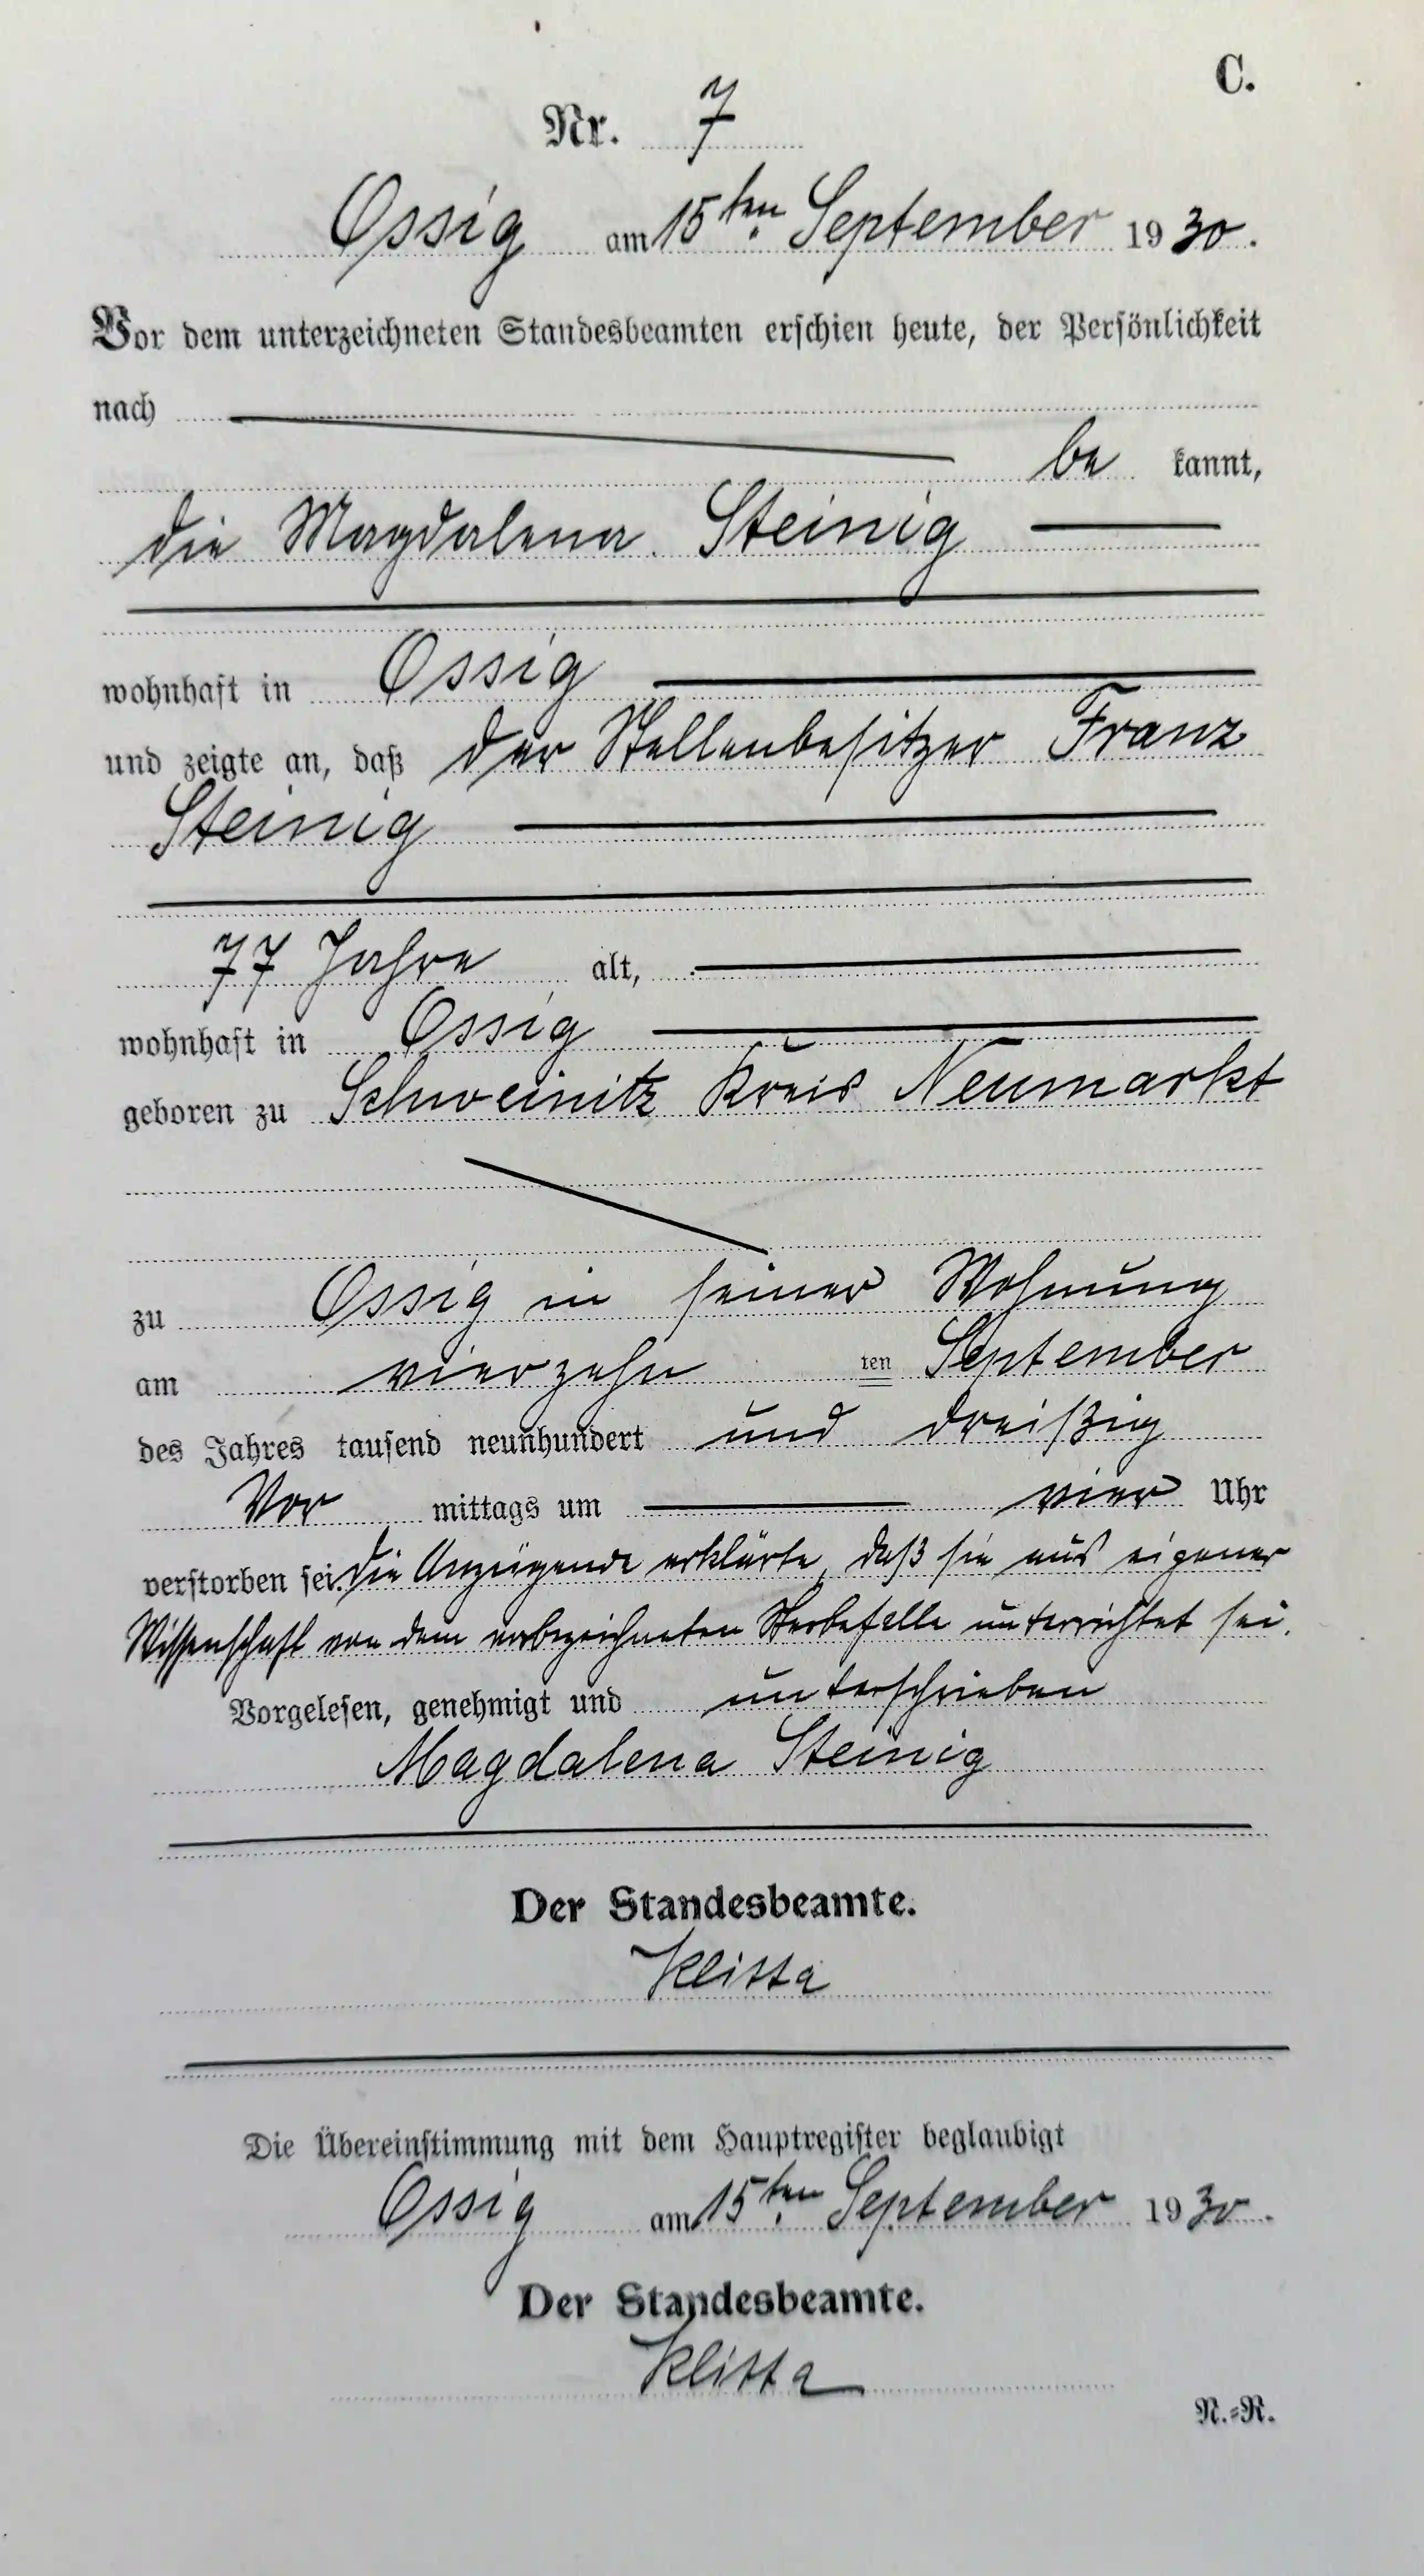 C.
Nr. 7
Ossig am 15ten September 1930.
Vor dem unterzeichneten Standesbeamten erschien heute, der Persönlichkeit
nach
be kannt,
die Magdalena Steinig
wohnhaft in Ossig
und zeigte an, daß der Stellenbesitzer Franz
Steinig
77 Jahre alt,
wohnhaft in Ossig
geboren zu Schweinitz Kreis Neumarkt
zu Ossig in seiner Wohnung
am vierzehn ten September
des Jahres tausend neunhundert und dreißig
Vor mittags um vier Uhr
verstorben sei. Die Anzeigende erklärte, daß sie aus eigener
Wissenschaft von dem vorbezeichneten Sterbefalle unterrichtet sei.
Vorgelesen, genehmigt und unterschrieben
Magdalena Steinig
Der Standesbeamte.
Die Übereinstimmung mit dem Hauptregister beglaubigt
Ossig am 15ten September 1930.
Der Standesbeamte.
N.=R.